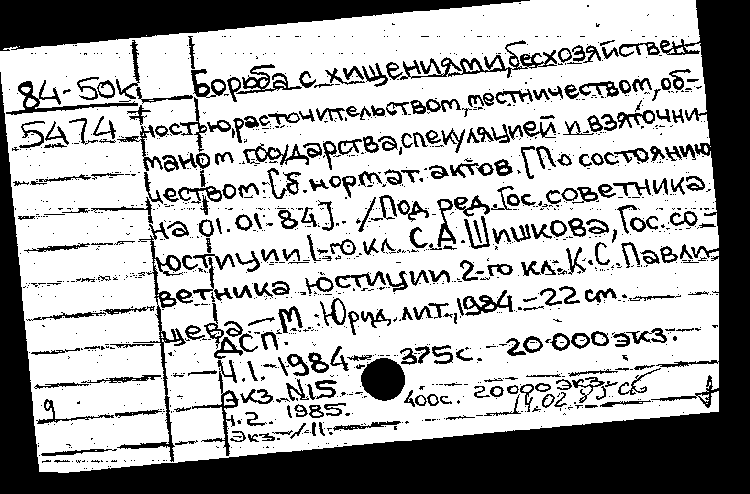 84-50к
5474
Борьба с хищениями, бесхозяйствен-
ностью, расточительством, местничеством, об-
маном государства, спекуляцией и взяточни-
чеством: [Сб. нормат. актов. [По состоянию
на 01.01.84]. /Под ред. Гос. советника
юстиции 1-го кл. С.А. Шишкова, Гос. со-
ветника юстиции 2-го кл. К.С. Павли-
щева — М.: Юрид. лит., 1984. — 22 см.
ДСП.
Ч.1. - 1984 - 375 с. 20.000 экз.
экз. N15.
ч.2. 1985. 400с. 20000 экз.
экз. 11.
14.02.85
9